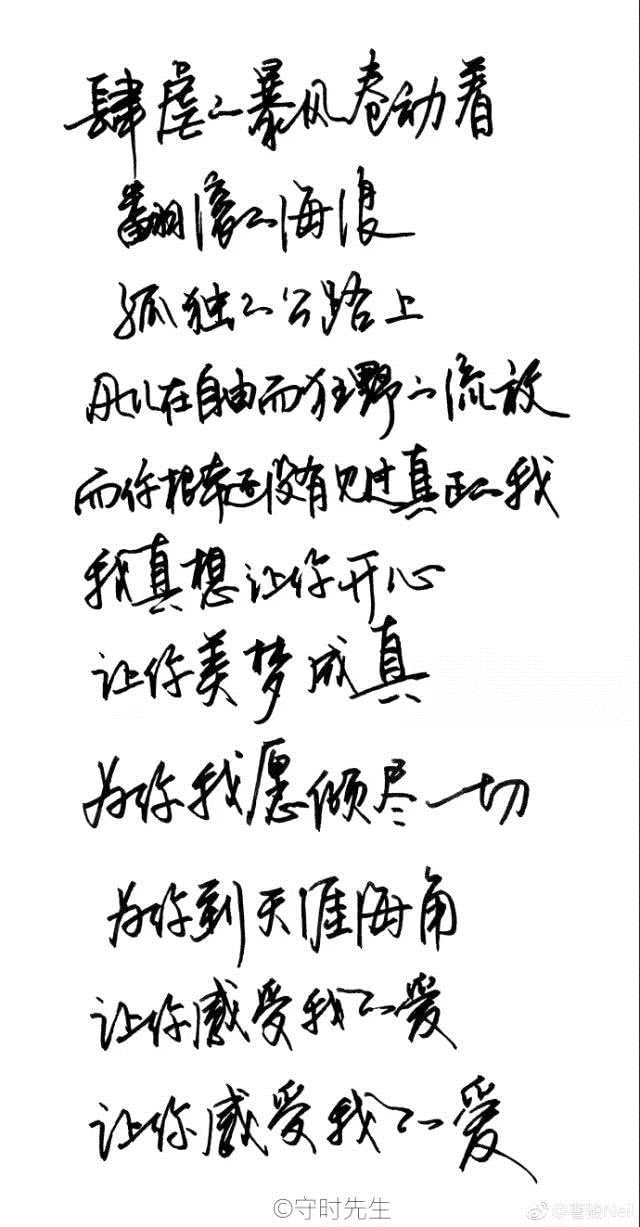 肆虐的暴风卷动着
翻滚的海浪
孤独的公路上
风儿在自由而狂野的流放
而你根本还没有见过真正的我
我真想让你开心
让你美梦成真
为你我愿倾尽一切
为你到天涯海角
让你感受我的爱
让你感受我的爱
©守时先生